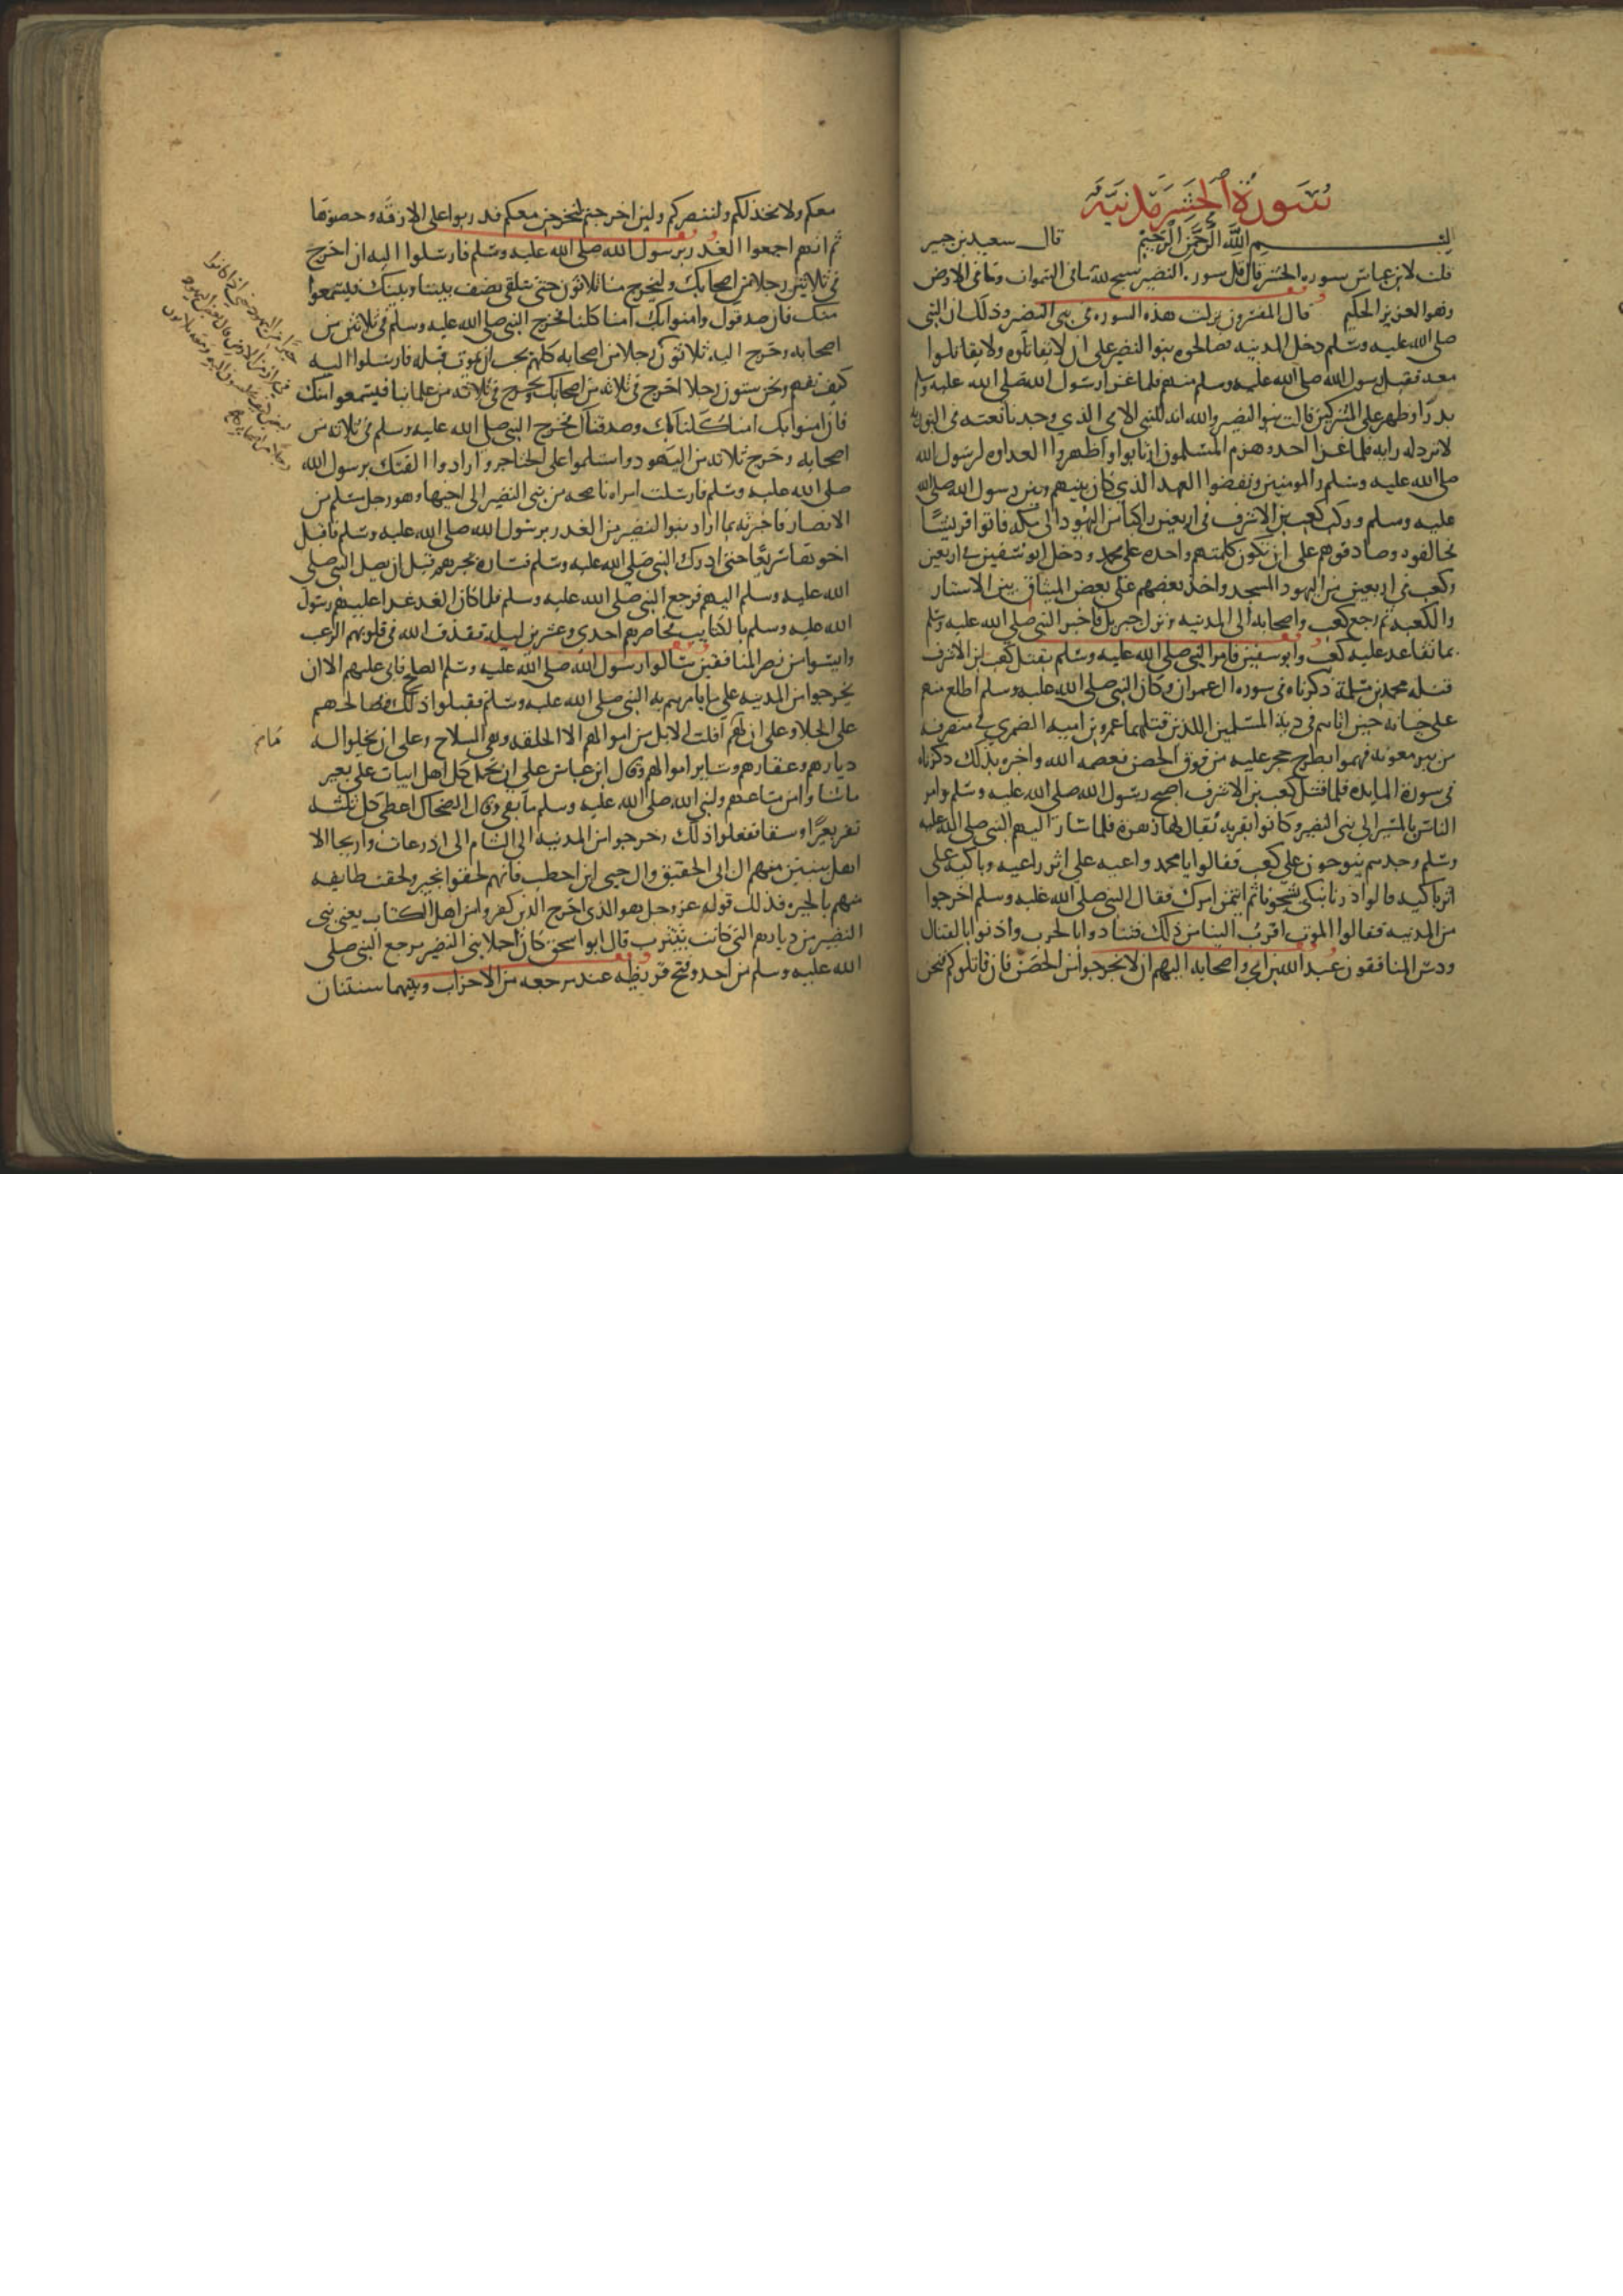 سورة الحشر مدنية
بسم الله الرحمن الرحيم قال سعيد بن جبير
قلت لابن عباس سوره الحشر قال قل سوره النضير سبح لله ما فى السموات وما فى الارض
وهو العزيز الحكيم قال المفسرون نزلت هذه السوره فى بنى النضير وذلك ان النبى
صلى الله عليه وسلم دخل المدينه فصالحوه بنوا النضير على ان لا يقاتلوه ولا يقاتلوا
معه فقبل رسول الله صلى الله عليه وسلم منهم فلما غزا رسول الله صلى الله عليه وسلم
بدرا وظهر على المشركين قالت بنوا النضير والله انه للنبى الامى الذي وجدنا نعته فى التوراه
لا ترد له رايه فلما غزا احد وهزم المسلمون ارتابوا واظهروا العداوه لرسول الله
صلى الله عليه وسلم والمومنين ونقضوا العهد الذي كان بينهم وبين رسول الله صلى الله
عليه وسلم وركب كعب بن الاشرف فى اربعين راكبا من اليهود الى مكه فاتوا قريشا
فحالفوه وصادقوهم على ان تكون كلمتهم واحده على محمد ودخل ابو سفين فى اربعين
وكعب فى اربعين من اليهود المسجد واخذ بعضهم على بعض الميثاق بين الاستار
والكعبه ثم رجع كعب واصحابه الى المدينه ونزل جبريل فاخبر النبى صلى الله عليه وسلم
بما تعاقد عليه كعب وابو سفين فامر النبى صلى الله عليه وسلم بقتل كعب ابن الاشرف
فقتله محمد بن مسلمة ذكرناه فى سوره ال عمران وكان النبى صلى الله عليه وسلم اطلع منهم
على خيانه حين اتاهم فى دية المسلمين اللذين قتلهما عمرو بن اميه الضمري فى منصرفه
من بير معونه فهموا بطرح حجر عليه من فوق الحصن فعصمه الله واخبره بذلك ذكرناه
فى سورة المايده فلما قتل كعب بن الاشرف اصبح رسول الله صلى الله عليه وسلم وامر
الناس بالمسير الى بنى النضير وكانوا بقريه يقال لها زهرة فلما سار اليهم النبى صلى الله عليه
وسلم وجدهم ينوحون على كعب فقالوا يا محمد واعيه على اثر راعيه وباكيه على
اثر باكيه قالوا ذرنا نبكى شجونا ثم ائتمر امرك فقال النبى صلى الله عليه وسلم اخرجوا
من المدينه فقالوا الموت اقرب الينا من ذلك فتنادوا بالحرب واذنوا بالقتال
ودس المنافقون عبد الله بن ابي واصحابه اليهم ان لا يخرجوا من الحصن فان قاتلوكم فنحن
معكم ولا نخذلكم ولننصركم ولين اخرجتم لنخرجن معكم فدربوا على الازقه وحصنوها
ثم انهم اجمعوا الغدر برسول الله صلى الله عليه وسلم فارسلوا اليه ان اخرج
فى ثلاثين رجلا من اصحابك وليخرج منا ثلاثون حتى نلتقى بنصف بيننا وبينك فيستمعوا
منك فان صدقوك وامنوا بك امنا كلنا فخرج النبى صلى الله عليه وسلم فى ثلاثين من
اصحابه وخرج اليه ثلاثون رجلا من اصحابه كلهم يحب ان يموت قبله فارسلوا اليه
كيف نفهم ونحن ستون رجلا اخرج فى ثلاثه من اصحابك ويخرج فى ثلاثه من علمائنا فيستمعوا منك
فان امنوا بك امنا كلنا بك وصدقناك فخرج النبى صلى الله عليه وسلم فى ثلاثه من
اصحابه وخرج ثلاثه من اليهود واشتملوا على الخناجر وارادوا الفتك برسول الله
صلى الله عليه وسلم فارسلت امراه ناصحه من بنى النضير الى اخيها وهو رجل مسلم من
الانصار فاخبرته بما اراد بنوا النضير من الغدر برسول الله صلى الله عليه وسلم فاقبل
اخوها سريعا حتى ادرك النبى صلى الله عليه وسلم فساره بخبرهم قبل ان يصل النبى صلى
الله عليه وسلم اليهم فرجع النبى صلى الله عليه وسلم فلما كان الغد غدا عليهم رسول
الله عليه وسلم بالكتايب فحاصرهم احدى وعشرين ليله فقذف الله فى قلوبهم الرعب
وايسوا من نصر المنافقين سالوا رسول الله صلى الله عليه وسلم الصلح فابى عليهم الا ان
يخرجوا من المدينه على ما يامرهم به النبى صلى الله عليه وسلم فقبلوا ذلك فصالحهم
على الجلا وعلى ان لهم اقلت الابل من اموالهم الا الحلقه وهى السلاح وعلى ان يخلوا له
ديارهم وعقارهم وساير اموالهم وقال ابن عباس على ان يحمل كل اهل ابيات على بعير
ما شاوا من متاعهم ولنبى الله صلى الله عليه وسلم ما بقى وقال الضحاك اعطى كل ثلثه
نفر بعيرا وسقا ففعلوا ذلك وخرجوا من المدينه الى الشام الى اذرعات واريحا الا
اهل بيتين منهم ال ابى الحقيق وال حيى ابن احطب فانهم لحقوا بخيبر ولحقت طايفه
منهم بالحيره فذلك قوله عز وجل هو الذى اخرج الذين كفروا من اهل الكتاب يعنى بنى
النضير من ديارهم التى كانت بيثرب قال ابو اسحق كان اجلا بنى النضير مرجع النبى صلى
الله عليه وسلم من احد وفتح قريظه عند مرجعه من الاحزاب وبينهما سنتان